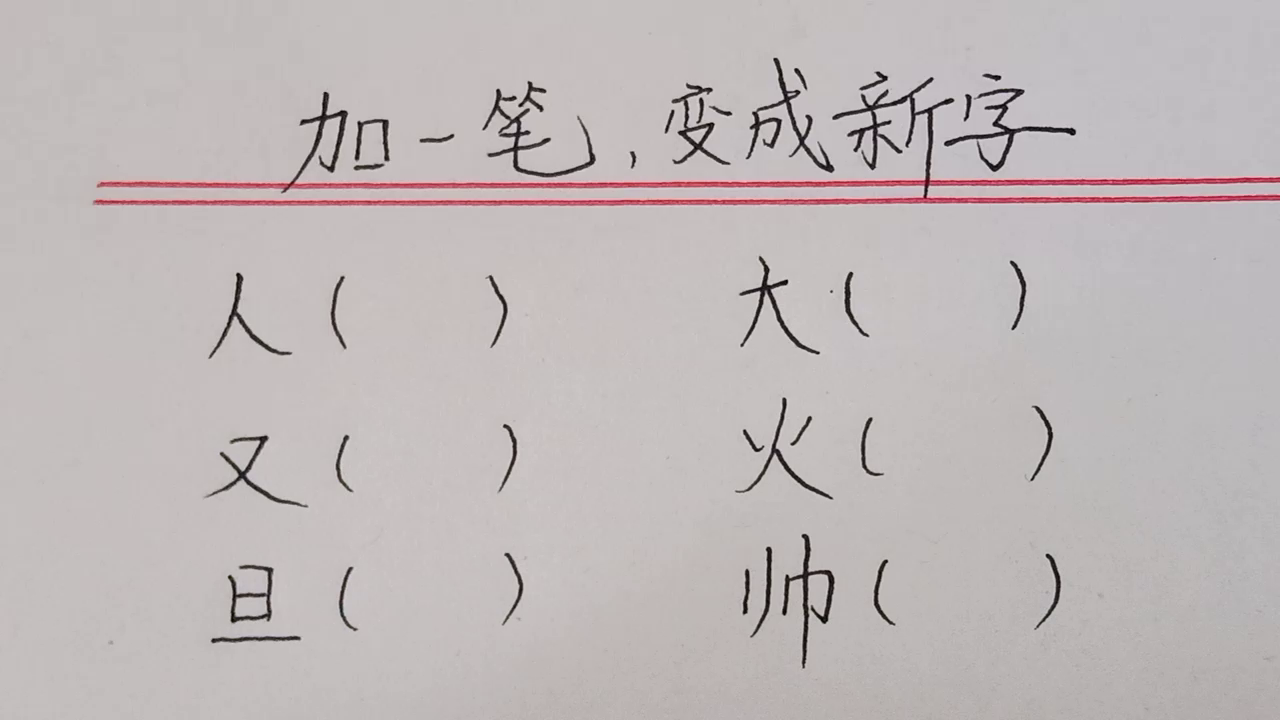 加一笔，变成新字
人（ ） 大（ ）
又（ ） 火（ ）
旦（ ） 帅（ ）